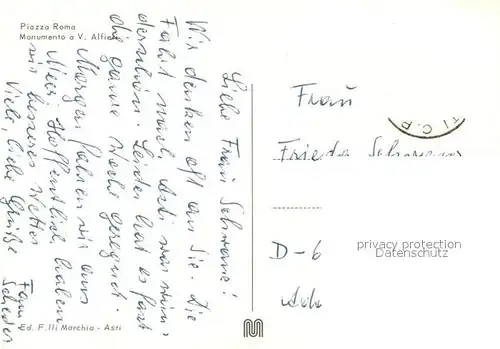 Piazza Roma
Monumento a V. Alfieri
Liebe Frau Schwane!
Wir denken oft an Sie. Die
Fahrt nach Asti war wun-
derschön. Leider hat es fast
die ganze Woche geregnet.
Morgen fahren wir ans
Meer. Hoffentlich haben
wir besseres Wetter
Viele, liebe Grüße
Fam.
Ed. F.lli Marchia - Asti
TI C.P
Frau
Frieda
D-6
privacy protection
Datenschutz